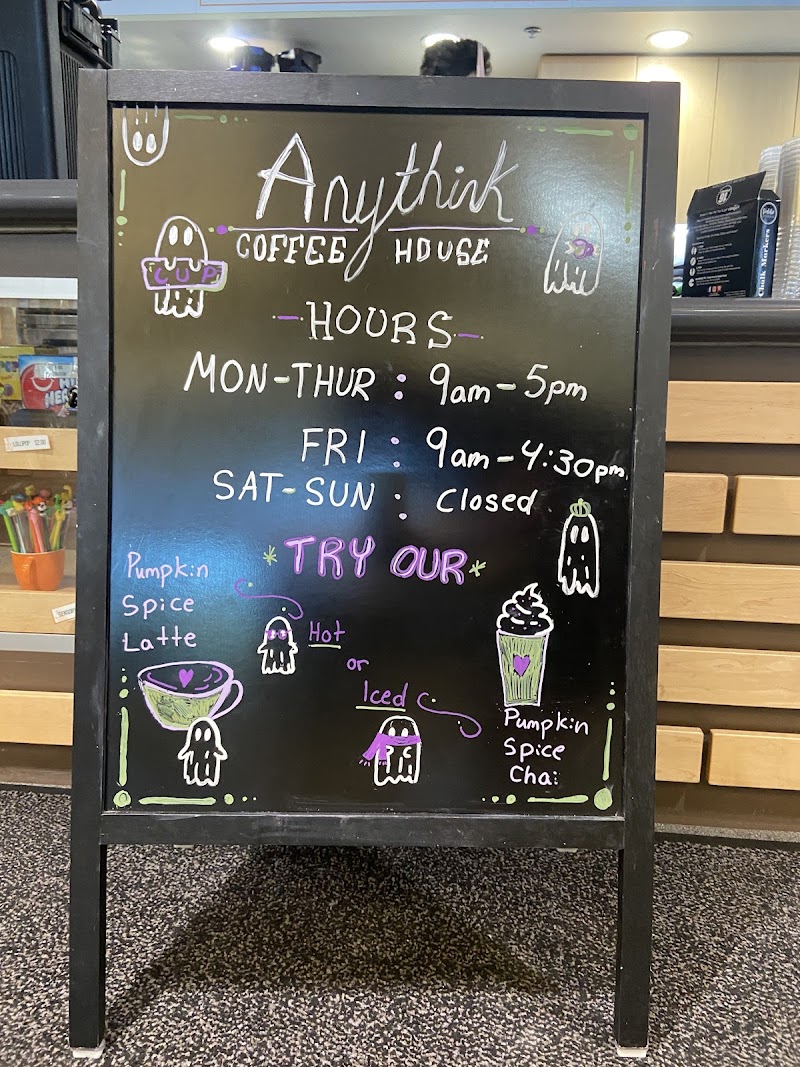 Anythink
COFFEE HOUSE
CUP
-HOURS-
MON-THUR : 9am-5pm
FRI : 9am-4:30pm
SAT-SUN : closed
*TRY OUR*
Pumpkin
Spice
Latte
Hot
or
Iced
Pumpkin
Spice
Chai
Chalk Markers
LOLLIPOP $2.00